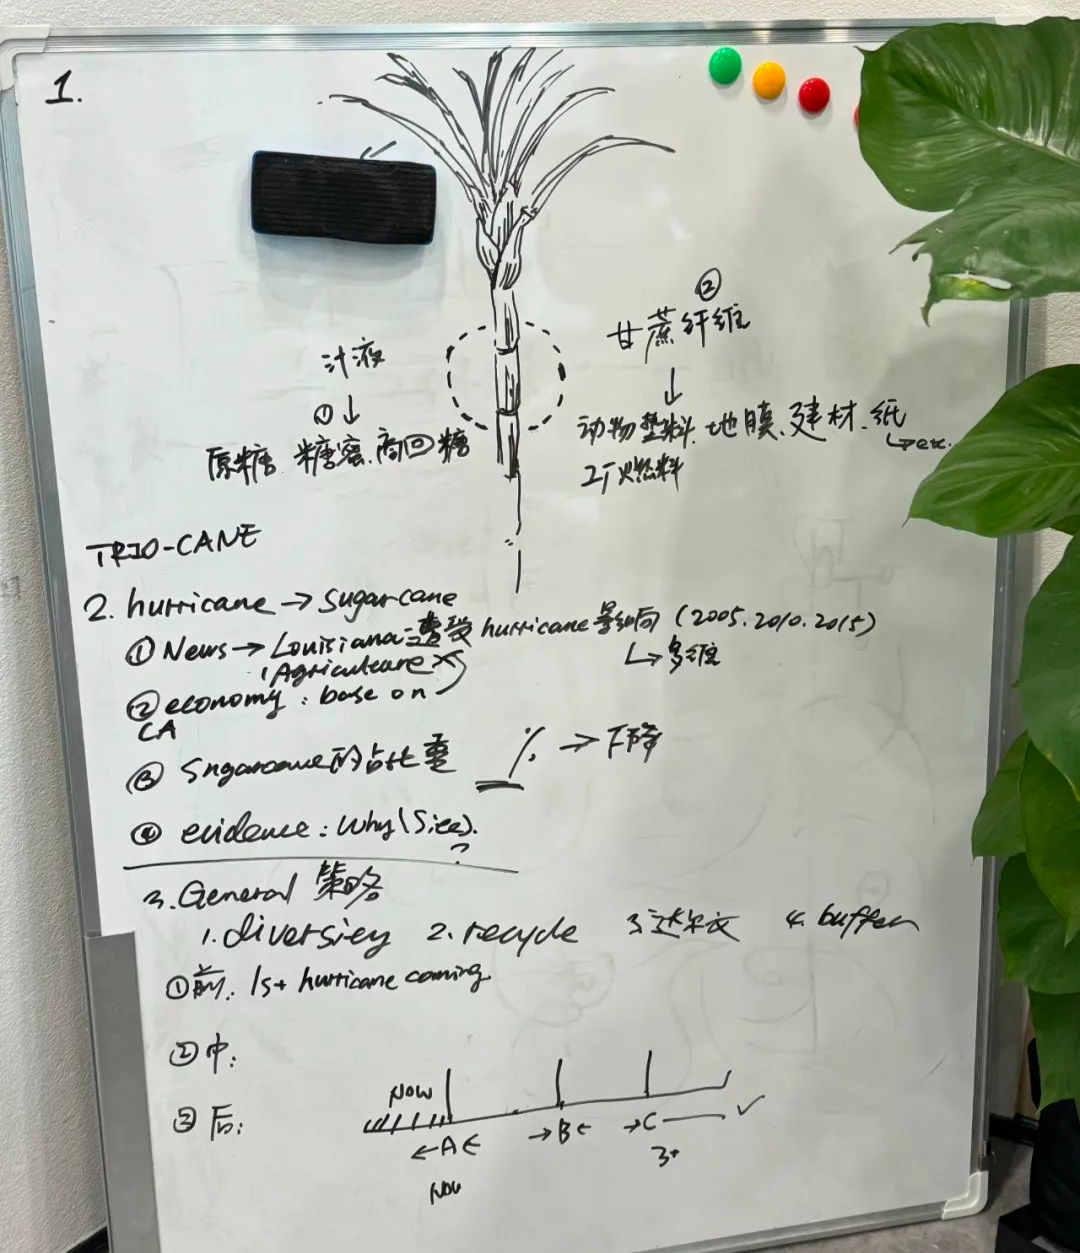 1.
②
甘蔗纤维
汁液
① ↓
↓
原糖 糖蜜、高回糖
动物垫料、地膜、建材、纸
↳ etc..
工厂燃料
TRIO-CANE
2. hurricane → sugarcane
① News → Louisiana 遭受 hurricane 影响 (2005. 2010. 2015)
↳ 多维
(Agriculture
② economy : base on
CA
③ Sugarcane 的占比重 __% → 下降
④ evidence : Why (Size).
?
3. General 策略
1. diversiey 2. recycle 3. 达尔文 4. buffer
① 前: 1st hurricane coming
② 中:
NOW
③ 后:
←A← →B← →C ✓
3+
NOW